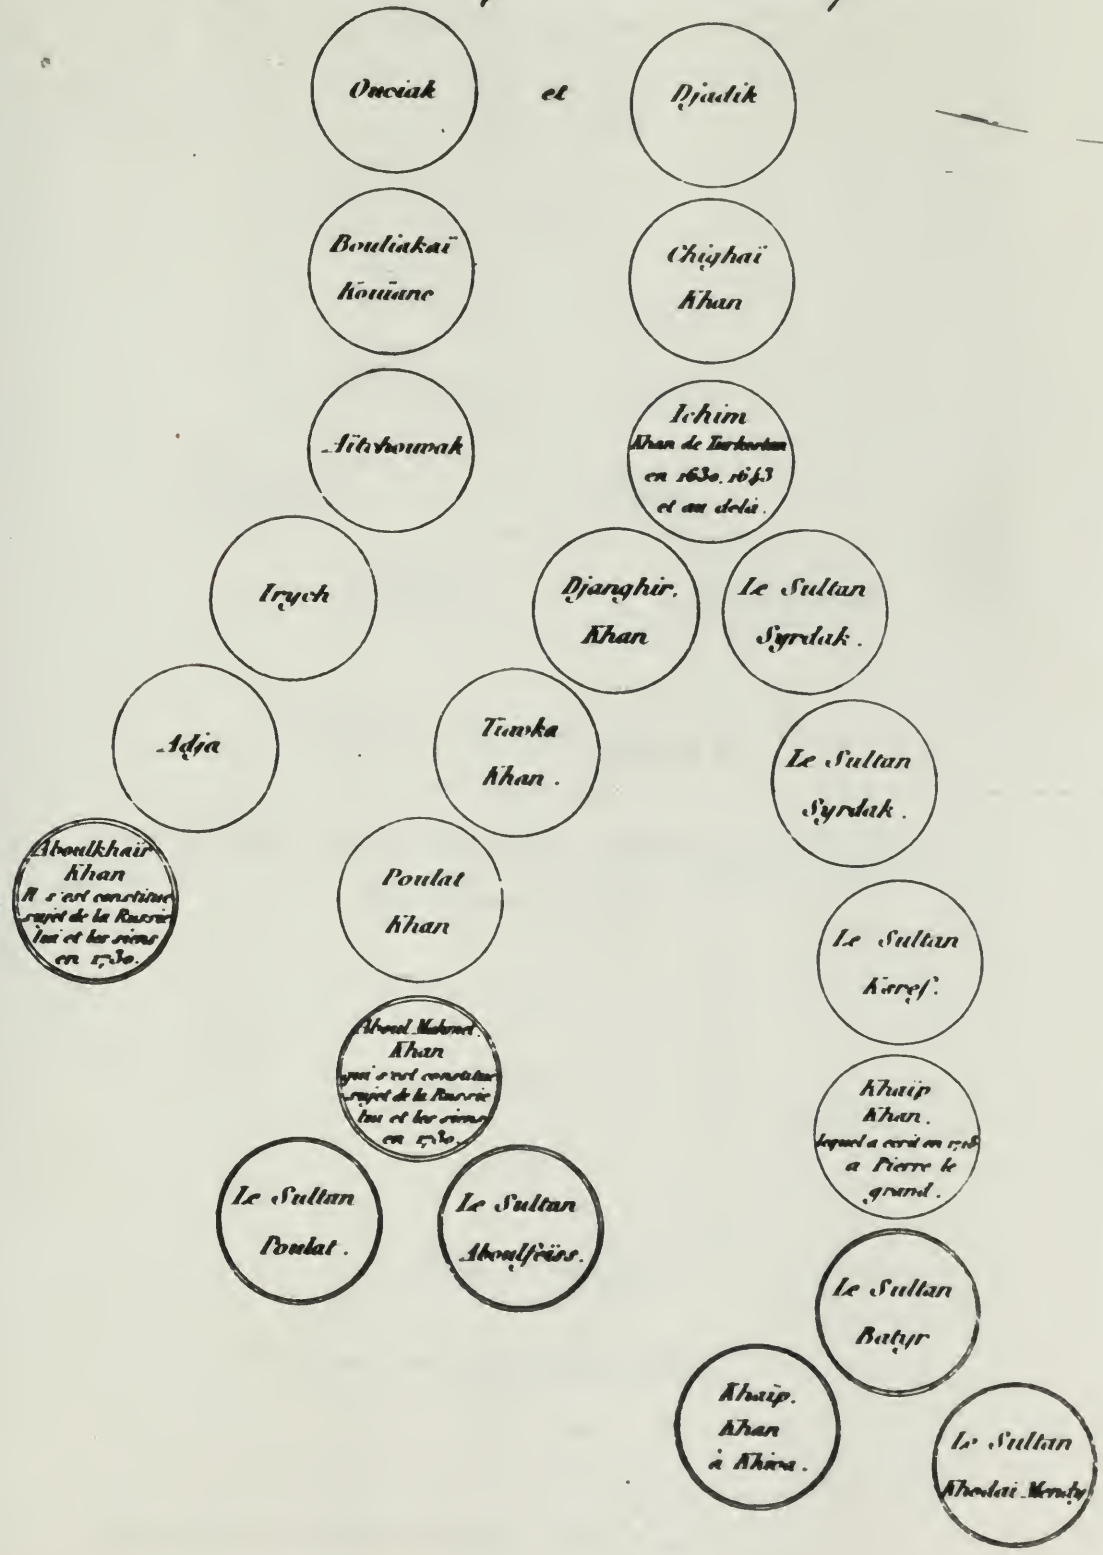 Ouciak
et
Djadik
Bouliakaï
Kouïane
Chighaï
Khan
Aïtchouvak
Ichim
Khan de Turkestan
en 1630. 1643
et au delà.
Irych
Djanghir.
Khan
Le Sultan
Syrdak.
Adja
Tiavka
Khan.
Le Sultan
Syrdak.
Aboulkhaïr
Khan
Il s'est constitué
sujet de la Russie
lui et les siens
en 1730.
Poulat
Khan
Le Sultan
Ksref.
Aboul Mahmet.
Khan
qui s'est constitué
sujet de la Russie
lui et les siens
en 1730.
Khaïp
Khan.
lequel a ecrit en 1718
a Pierre le
grand.
Le Sultan
Poulat.
Le Sultan
Aboulfeïss.
Le Sultan
Batyr
Khaïp.
Khan
à Khiva.
Le Sultan
Khodai-Mendy